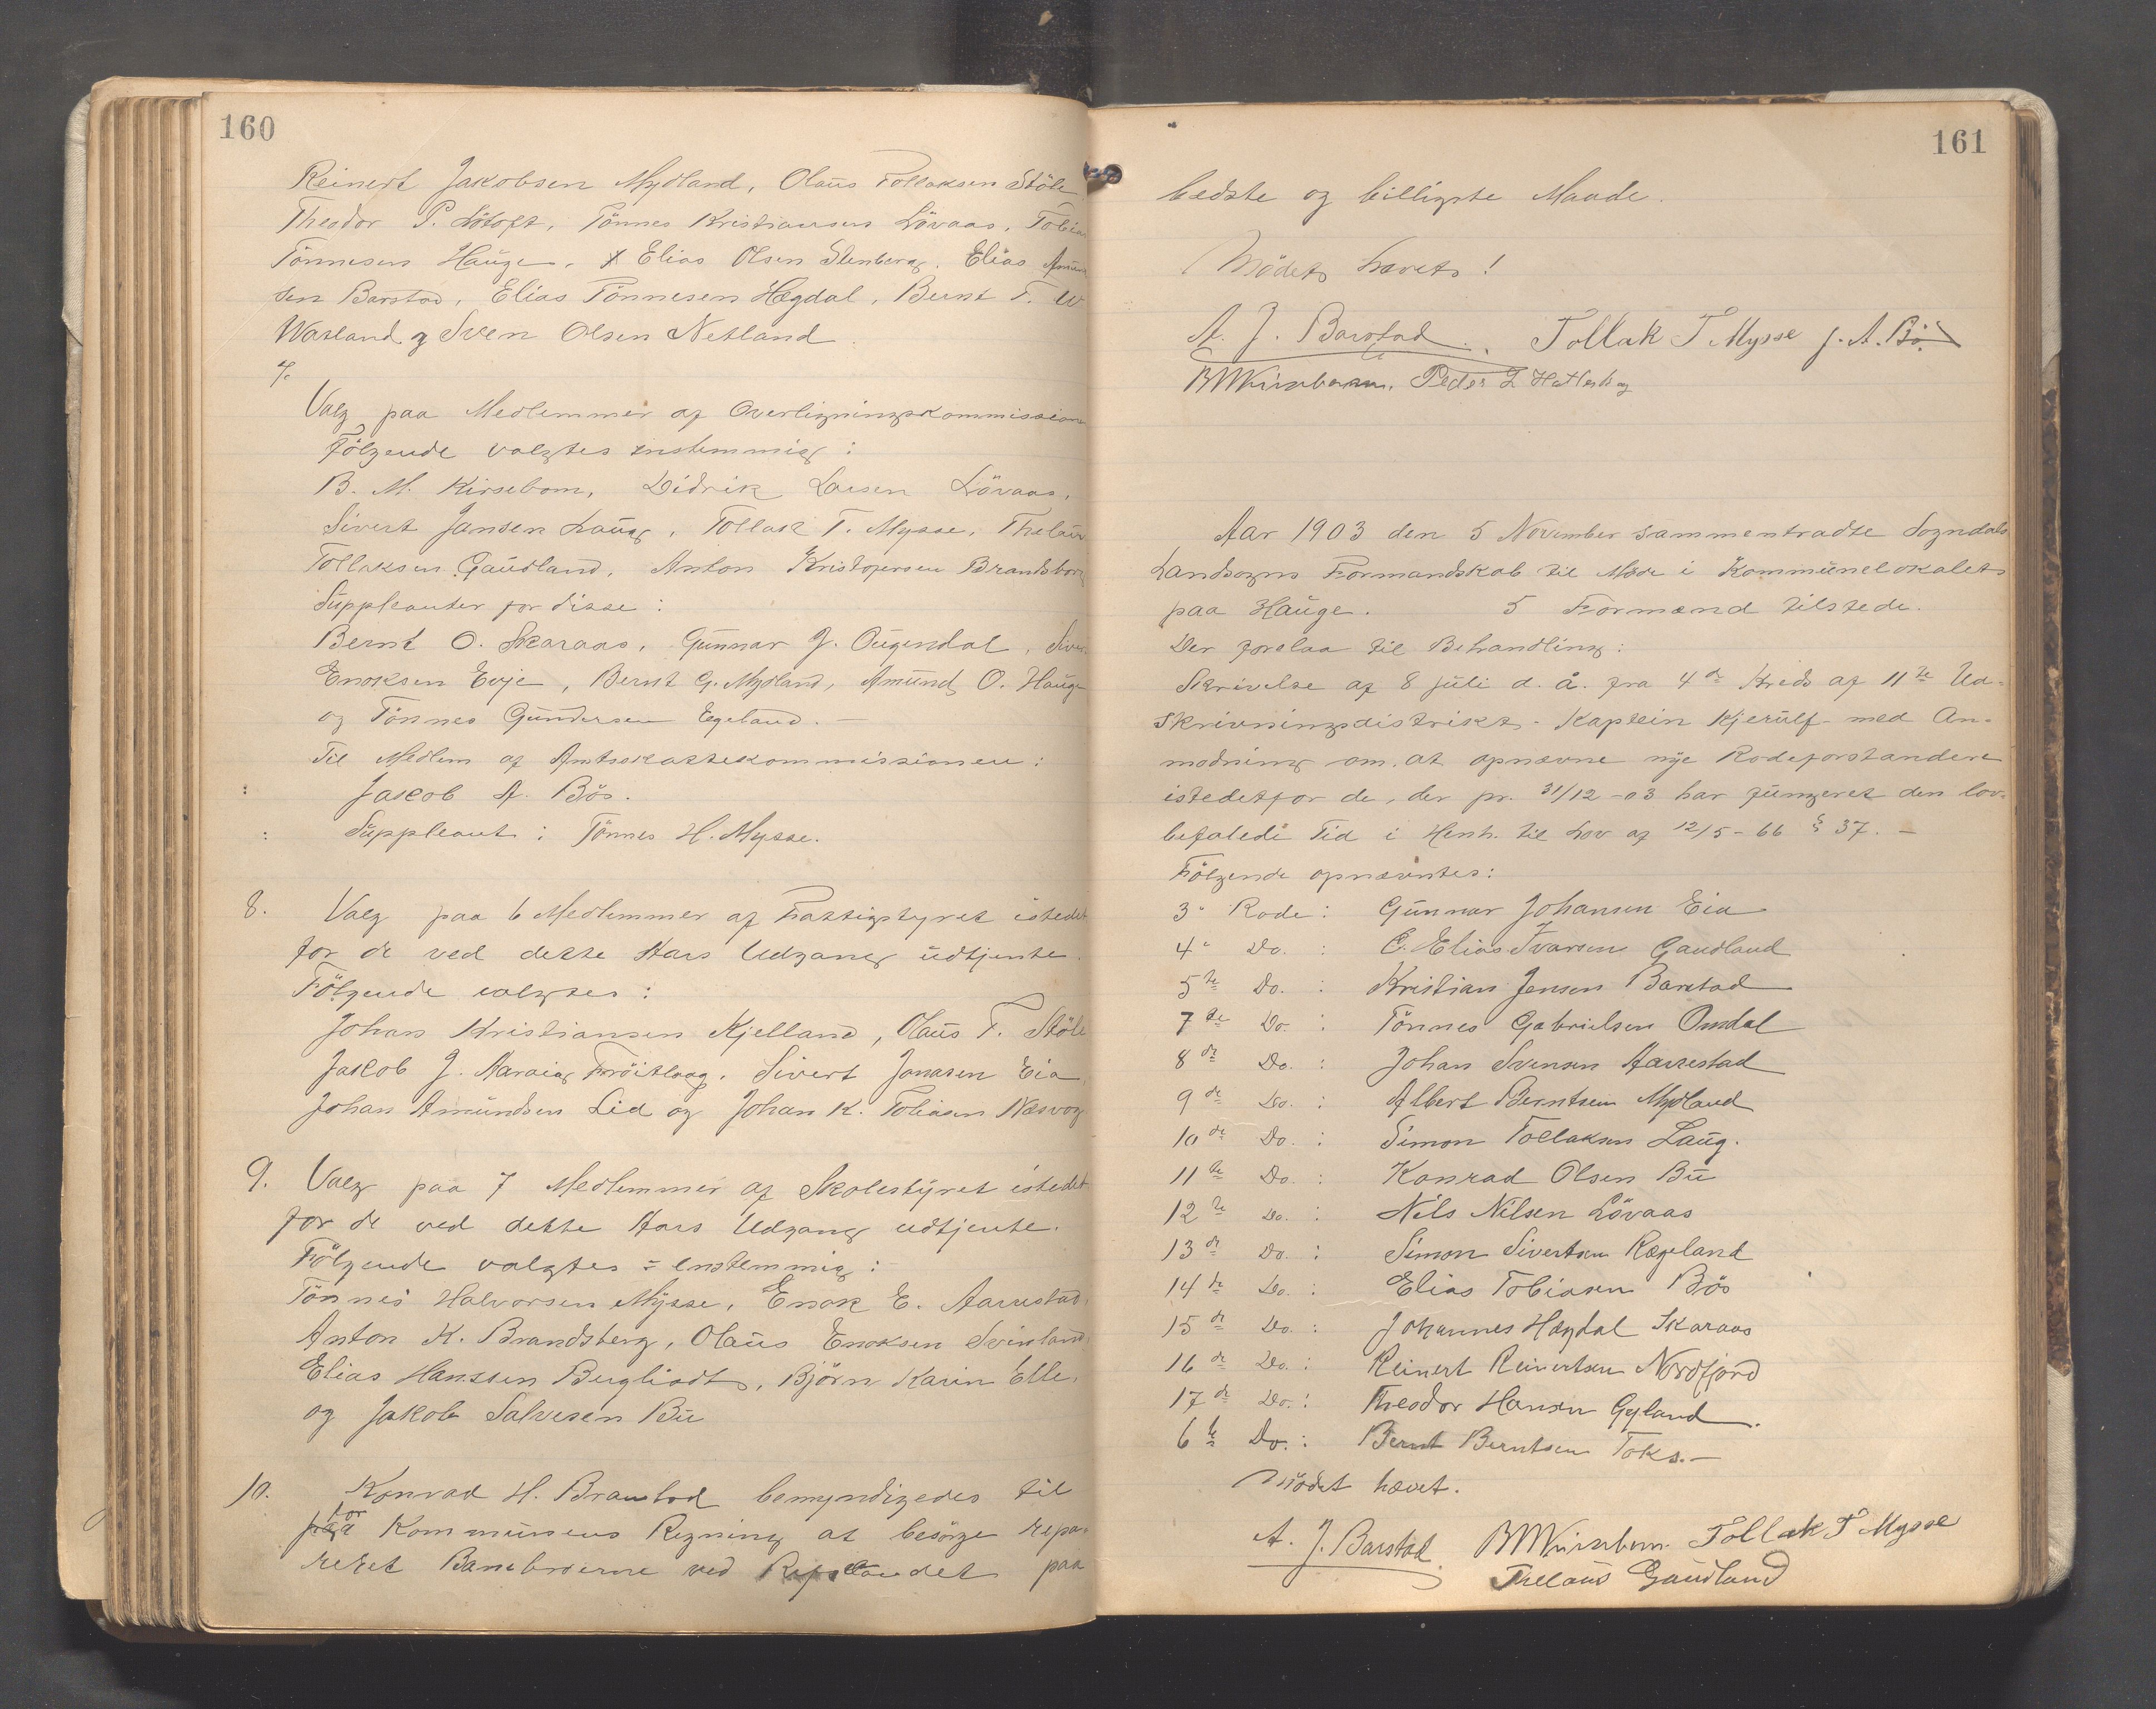 160
Reinert Jakobsen Mydland, Olaus Tollaksen Stöle
Theodor P. Lötoft, Tönnes Kristiansen Lövaas, Tobias
Tönnesen Hauge, Elias Olsen Stenberg, Elias Amund
sen Barstad, Elias Tönnesen Hegdal, Bernt T.
Watland og Sven Olsen Netland
7.
Valg paa Medlemmer af Overligningskommissionen
Fölgende valgtes enstemmig:
B. M. Kirsebom, Didrik Larsen Lövaas,
Sivert Jansen Laug, Tollak T. Mysse, Thelaus
Tollaksen Gaudland, Anton Kristofersen Brandsberg
Suppleanter for disse:
Bernt O. Skaraas, Gunnar J. Ougendal, Sivert
Enoksen Evje, Bernt G. Mydland, Amund O. Hauge
og Tönnes Gundersen Egeland. —
Til Medlem af Amtsskattekommissionen:
Jakob A. Bös.
Suppleant: Tönnes H. Mysse.
8. Valg paa 6 Medlemmer af Fattigstyret istedet
for de ved dette Aars Udgang udtjente.
Fölgende valgtes:
Johan Kristiansen Kjelland, Olaus T. Stöle
Jakob J. Fröitlog, Sivert Jonasen Eia,
Johan Amundsen Lid og Johan K. Tobiasen Næsvog
9. Valg paa 7 Medlemmer af Skolestyret istedet
for de ved dette Aars Udgang udtjente.
Fölgende valgtes = enstemmig:
Tönnes Halvorsen Mysse, Enok E. Aarrestad,
Anton K. Brandsberg, Olaus Enoksen Svinland,
Elias Hanssen Bergliodt, Björn Karin Elle,
og Jakob Salvesen Bu
10. Konrad H. Braustad bemyndigedes til
for Kommunens Regning at besörge repa-
reret Baadbroerne ved Repslandet paa
161
bedste og billigste Maade.
Mödets hævets!
A. J. Barstad. Tollak T Mysse J. A. Bö.
BMKirsebom. Peder L Hatleskog
Aar 1903 den 5 November sammentraadte Sogndals
Landsogns Formandskab til Möde i Kommunelokalet
paa Hauge. 5 Formænd tilstede.
Der forelaa til Behandling:
Skrivelse af 8 juli d. å. fra 4de Kreds af 11te Ud-
skrivningsdistrikt - Kaptein Kjerulf - med An-
modning om at opnævne nye Rodeforstandere
istedetfor de, der pr. 31/12 -03 har fungeret den lov-
befalede Tid i Henh. til Lov af 12/5 - 66 § 37. —
Fölgende opnævntes:
3. Rode: Gunnar Johansen Eia
4. Do. : E. Elias Ivarsen Gaudland
5te Do. : Kristian Jensen Barstad
7de Do. : Tönnes Gabrielsen Omdal
8de Do. : Johan Svensen Aarrestad
9de Do. : Albert Berntsen Mydland
10de Do. : Simon Tollaksen Laug.
11te Do. : Konrad Olsen Bu
12te Do. : Nils Nilsen Lövaas
13de Do. : Simon Sivertsen Rægeland
14de Do. : Elias Tobiasen Bös
15de Do. : Johannes Hegdal Skaraas
16de Do. : Reinert Reinertsen Nordfjord
17de Do. : Theodor Hansen Gyland.
6te Do. : Bernt Berntsen Toks. —
Mödet hævet.
A. J. Barstad. BMKirsebom. Tollak T Mysse
Thelaus Gaudland